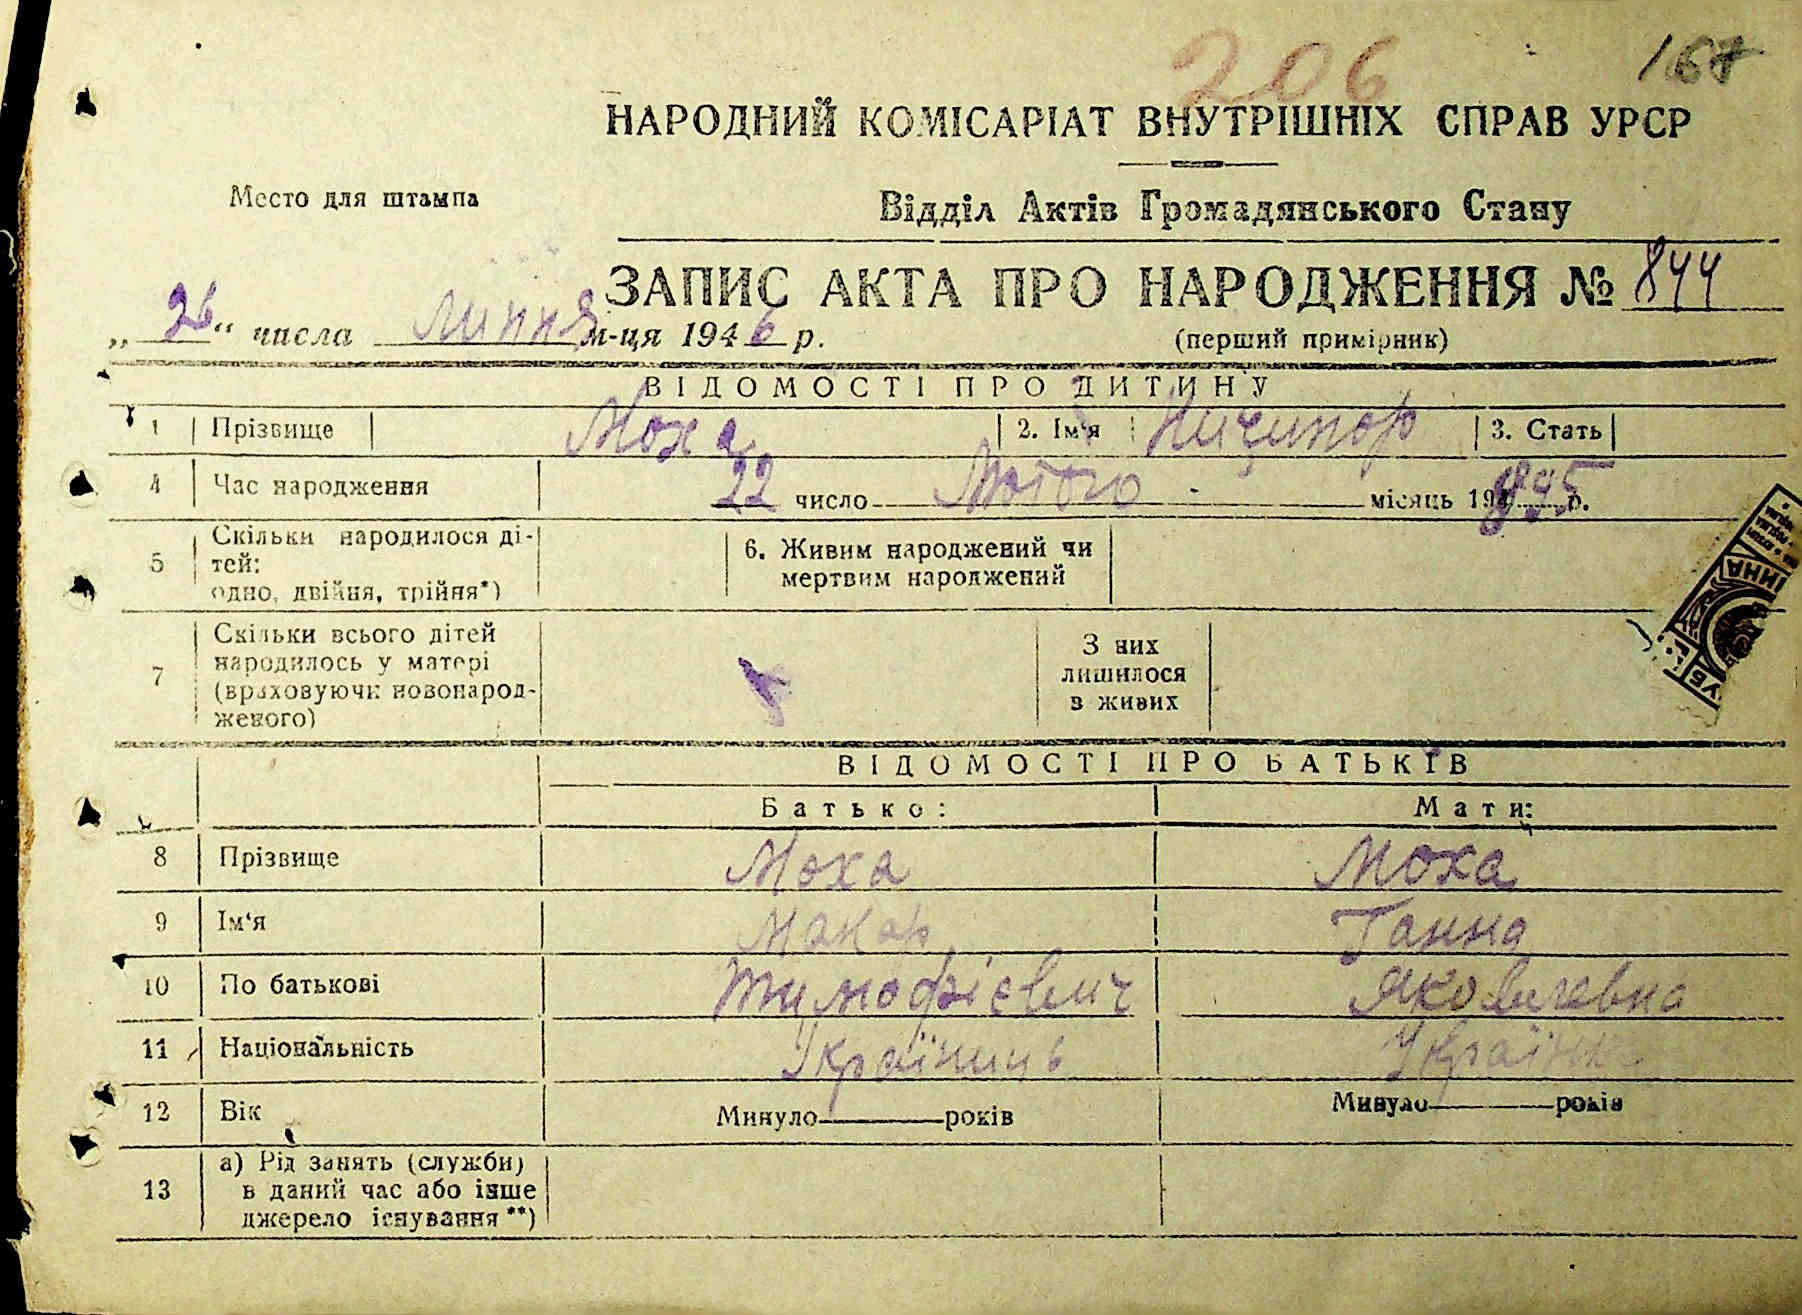 206 167
НАРОДНИЙ КОМІСАРІАТ ВНУТРІШНІХ СПРАВ УРСР
Место для штампа
Відділ Актів Громадянського Стану
ЗАПИС АКТА ПРО НАРОДЖЕННЯ № 844
„26“ числа липня м-ця 1946 р.
(перший примірник)
ВІДОМОСТІ ПРО ДИТИНУ
1 Прізвище Моха 2. Ім‘я Ничипор 3. Стать
4 Час народження 22 число Лютого місяць 1895 р.
5 Скільки народилося ді-
тей:
одно, двійня, трійня*)
6. Живим народжений чи
мертвим народжений
7 Скільки всього дітей
народилось у матері
(враховуючи новонарод-
женого)
З них
лишилося
в живих
ВІДОМОСТІ ПРО БАТЬКІВ
Батько: Мати:
8 Прізвище Моха Моха
9 Ім‘я Макар Ганна
10 По батькові Тимофієвич Яковлевна
11 Національність Українець Українка
12 Вік Минуло років Минуло років
13 а) Рід занять (служби)
в даний час або інше
джерело існування **)